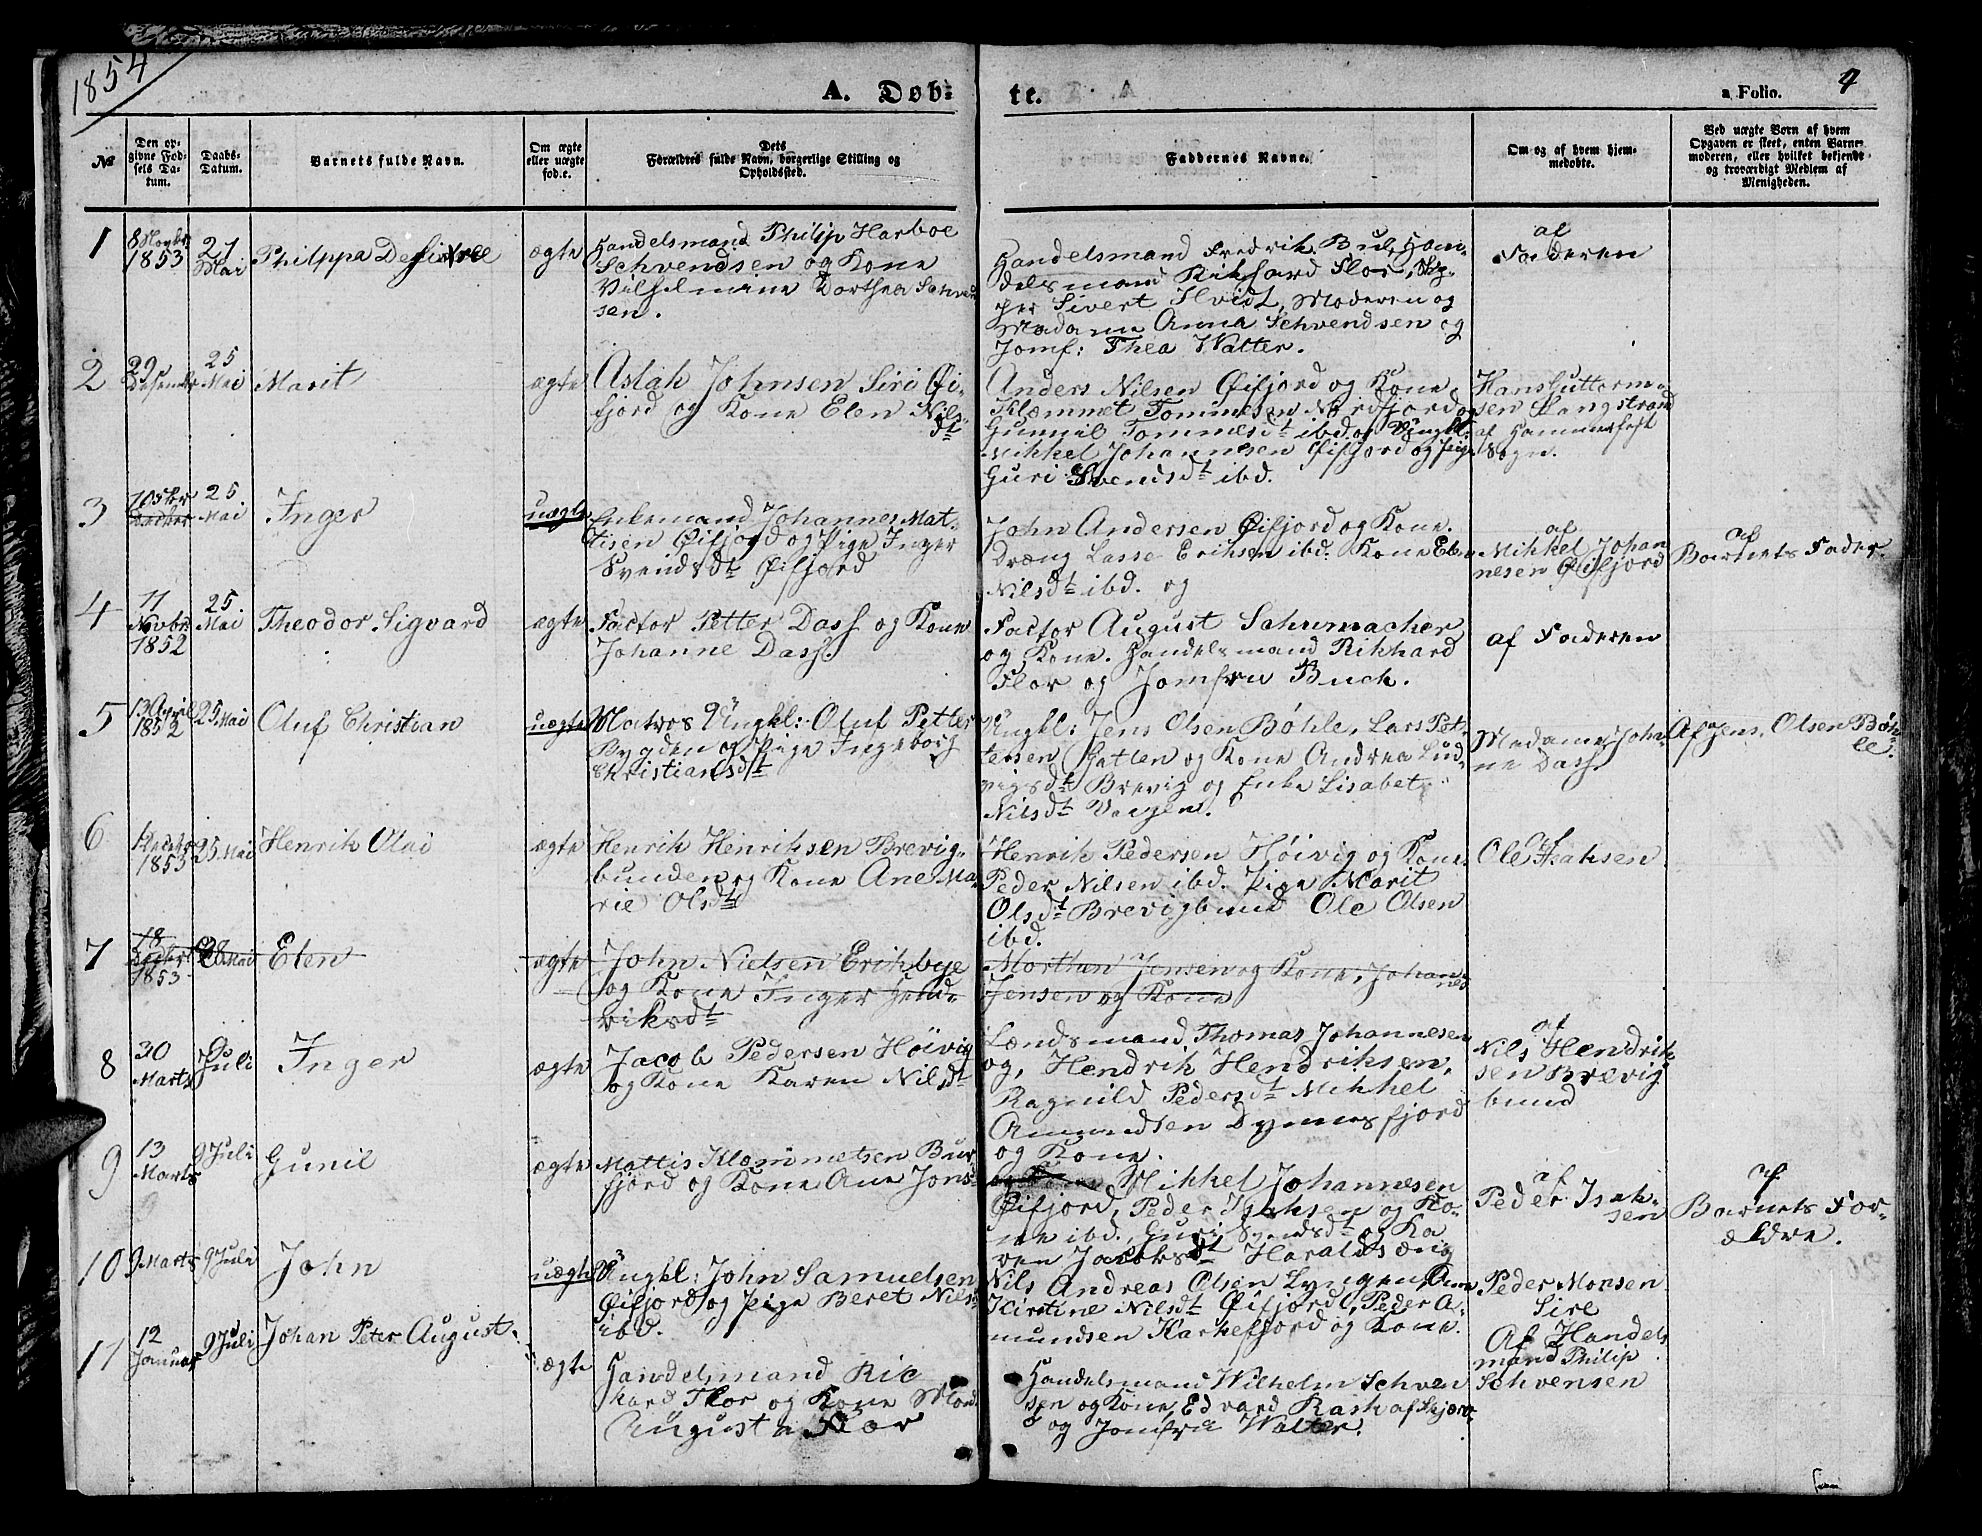 1854
A. Døb-
te.
a Folio.
4
№
Den op-
givne Fød-
sels Da-
tum.
Daabs-
Datum.
Barnets fulde Navn.
Om ægte
eller uægte
fød.e.
Dets
Forældres fulde Navn, borgerlige Stilling og
Opholdssted.
Faddernes Navne.
Om og af hvem hjem-
medøbte.
Ved uægte Børn af hvem
Opgaven er skeet, enten Barne-
moderen, eller hvilket bekjendt
og troværdigt Medlem af
Menigheden.
1
8 Novbr
1853
21
Mai
Philppa Desirree
ægte
Handelsmand Philip Harboe
Schvendsen og Kone
Vilhelmene Dorthea Schvend
sen.
Handelsmand Fredrik Bul, Han-
delsmand Rikhard Flor, Skip-
per Sivert Hvidt, Moderen og
Madame Anna Schvendsen og
Jomf: Thea Walter.
af
Faderen
2
29
Desember
25
Mai
Marit
ægte
Aslak Johnsen Siri Øi-
fjord og Kone Elen Nils-
dt
Anders Nilsen Øifjord og Kone,
Klæmmet Tommesen Nordfjord og
Gunnil Tommesdt ibd. og Ungkl:
Mikkel Johannesen Øifjord og Pige
Guri Svendsdt ibd.
Hans Guttorm-
sen Langstrand
af Hammerfest
Sogn.
3
10
25
Mai
Inger
uægte
Enkemand Johannes Mat-
tisen Øifjord og Pige Inger
Svendsdt Øifjord
John Andersen Øifjord og Kone.
Dræng Lasse Eriksen ibd. Kone Elen
Nilsdt ibd. og
af
Mikkel Johan
nesen Øifjord
af
Barnets Fader.
4
11
Novbr
1852
25.
Mai
Theodor Sigvard
ægte
Factor Petter Dass og Kone
Johanne Dass.
Factor August Schumacher
og Kone. Handelsmand Rikhard
Flor og Jomfru Buck.
af Faderen
5
13 April
1852
25 Mai
Oluf Christian
uægte
Matros Ungkl: Oluf Petter
Bygden og Pige Ingeborg
Christiansdt
Ungkl: Jens Olsen Bøhle, Lars Pet-
tersen Gatten og Kone Andrea Lud-
vigsdt Brevig og Enke Lisabet
Nilsdt Vaagen.
Madame Johan-
ne Dass
Af Jens Olsen Bøh-
le.
6
1853
25 Mai
Henrik Olai
ægte
Henrik Henriksen Brevig-
bunden og Kone Ane Ma-
rie Olsdt
Henrik Pedersen Høivig og Kone
Peder Nilsen ibd. Pige Marit
Olsdt Brevigbund Ole Olsen
ibd.
af
Ole Isaksen
7
18
1853
28 Mai
Elen
ægte
John Nielsen Erikbye
og Kone Inger Hend-
riksdt
Morthen Jensen og Kone, Johannes
Jensen og Kone
8
30
Marts
9
Juli
Inger
ægte
Jacob Pedersen Høivig
og Kone Karen Nilsdt
Lændsmand Thomas Johannesen
og, Hendrik Hendriksen,
Ragnild Pedersdt Mikkel
Amundsen Dynnesfjord
og Kone.
af
Nils Hendrik-
sen Brevig
bund
9
13
Marts
9 Juli
Gunil
ægte
Mattis Klæmmetsen Bur-
fjord og Kone Ane Jons-
Mikkel Johannesen
Øifjord, Peder Isaksen og Ko-
ne ibd., Guri Svendsdt og Ka
ren Jacobsdt Haraldsæng
af
Peder Isak-
sen
af
Barnets For-
ældre.
10
9 Marts
9 Juli
John
uægte
Ungkl: John Samuelsen
Øifjord og Pige Beret Nils
ibd.
Nils Andreas Olsen Lyngen, Ane
Kirstine Nilsdt Øifjord, Peder A-
mundsen Karkefjord og Kone.
Peder Monsen
Sire
11
12
Januar
9 Juli
Johan Peter August.
ægte
Handelsmand Ric
hard Flor og Kone Mad.
Augusta Flor
Handelsmand Wilhelm Schven
sen og Kone, Edvard Rask af Skjærv
og Jomfru Walter.
Af Handels
mand Philip
Schvensen